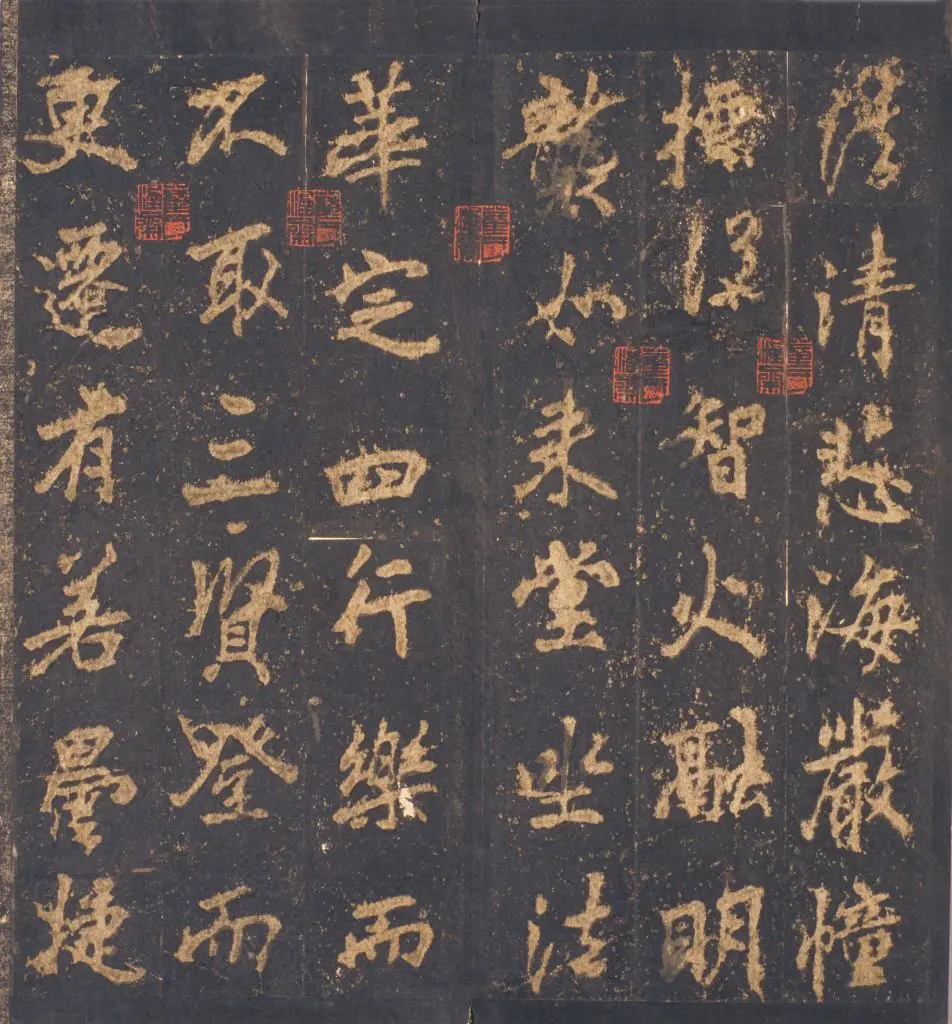 清悲海嚴幢
摽智火融明
如來堂坐法
華定四行樂而
不取三賢登而
更遷有若曇捷